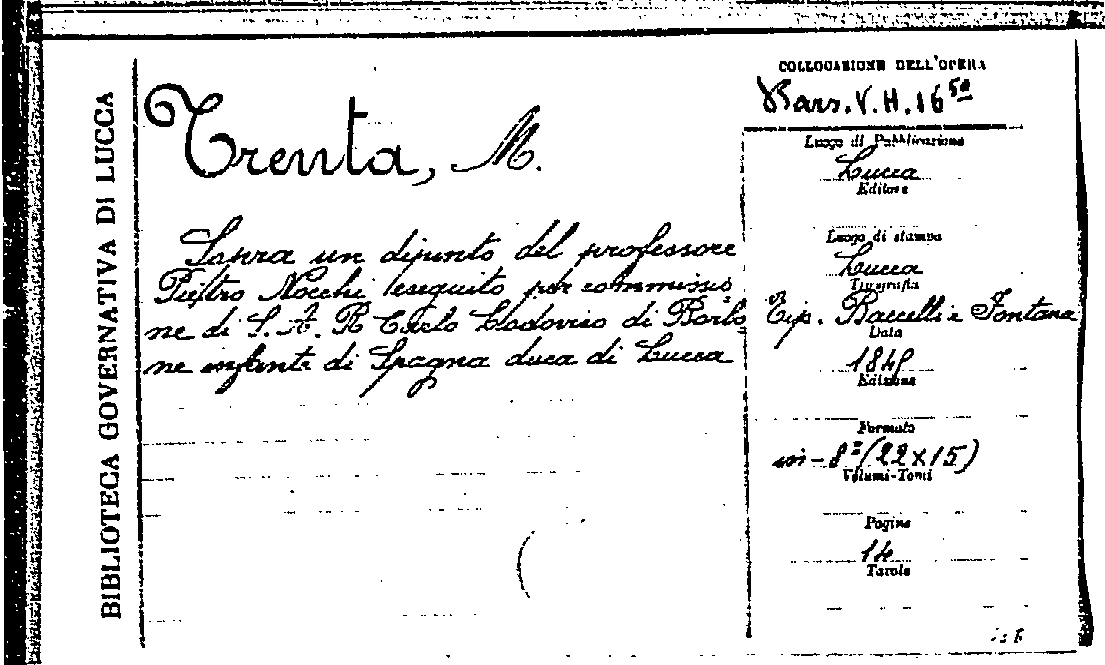 BIBLIOTECA GOVERNATIVA DI LUCCA
Trenta, M.
Sopra un dipinto del professore
Pietro Nocchi eseguito per commissio
ne di S. A. R Carlo Lodovico di Borbo
ne infante di Spagna duca di Lucca
COLLOCAZIONE DELL'OPERA
V.H.16
Luogo di Pubblicazione
Lucca
Editore
Luogo di stampa
Lucca
Tipografia
Tip. Baccelli e Fontana
Data
Edizione
Formato
in-8º (22x15)
Volumi-Tomi
Pagine
14
Tavole